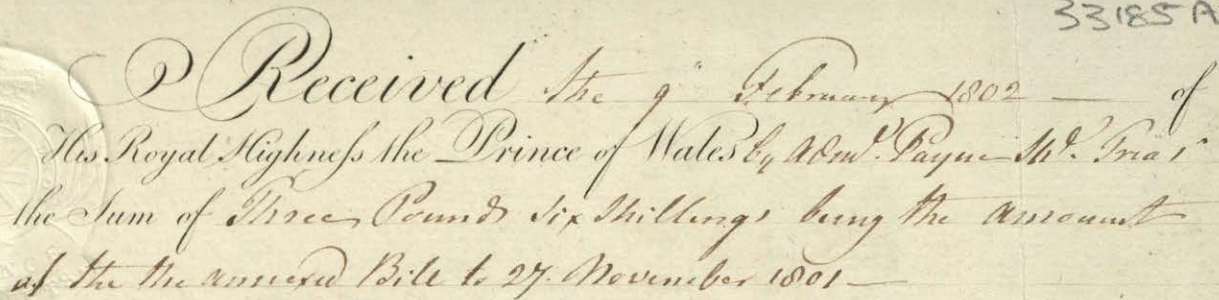 33185A
Received the 9th February 1802 — of
His Royal Highneſs the Prince of Wales by Adml. Payne
the Sum of Three Pounds Six Shillings being the Amount
of the the annexed Bill to 27. November 1801 —